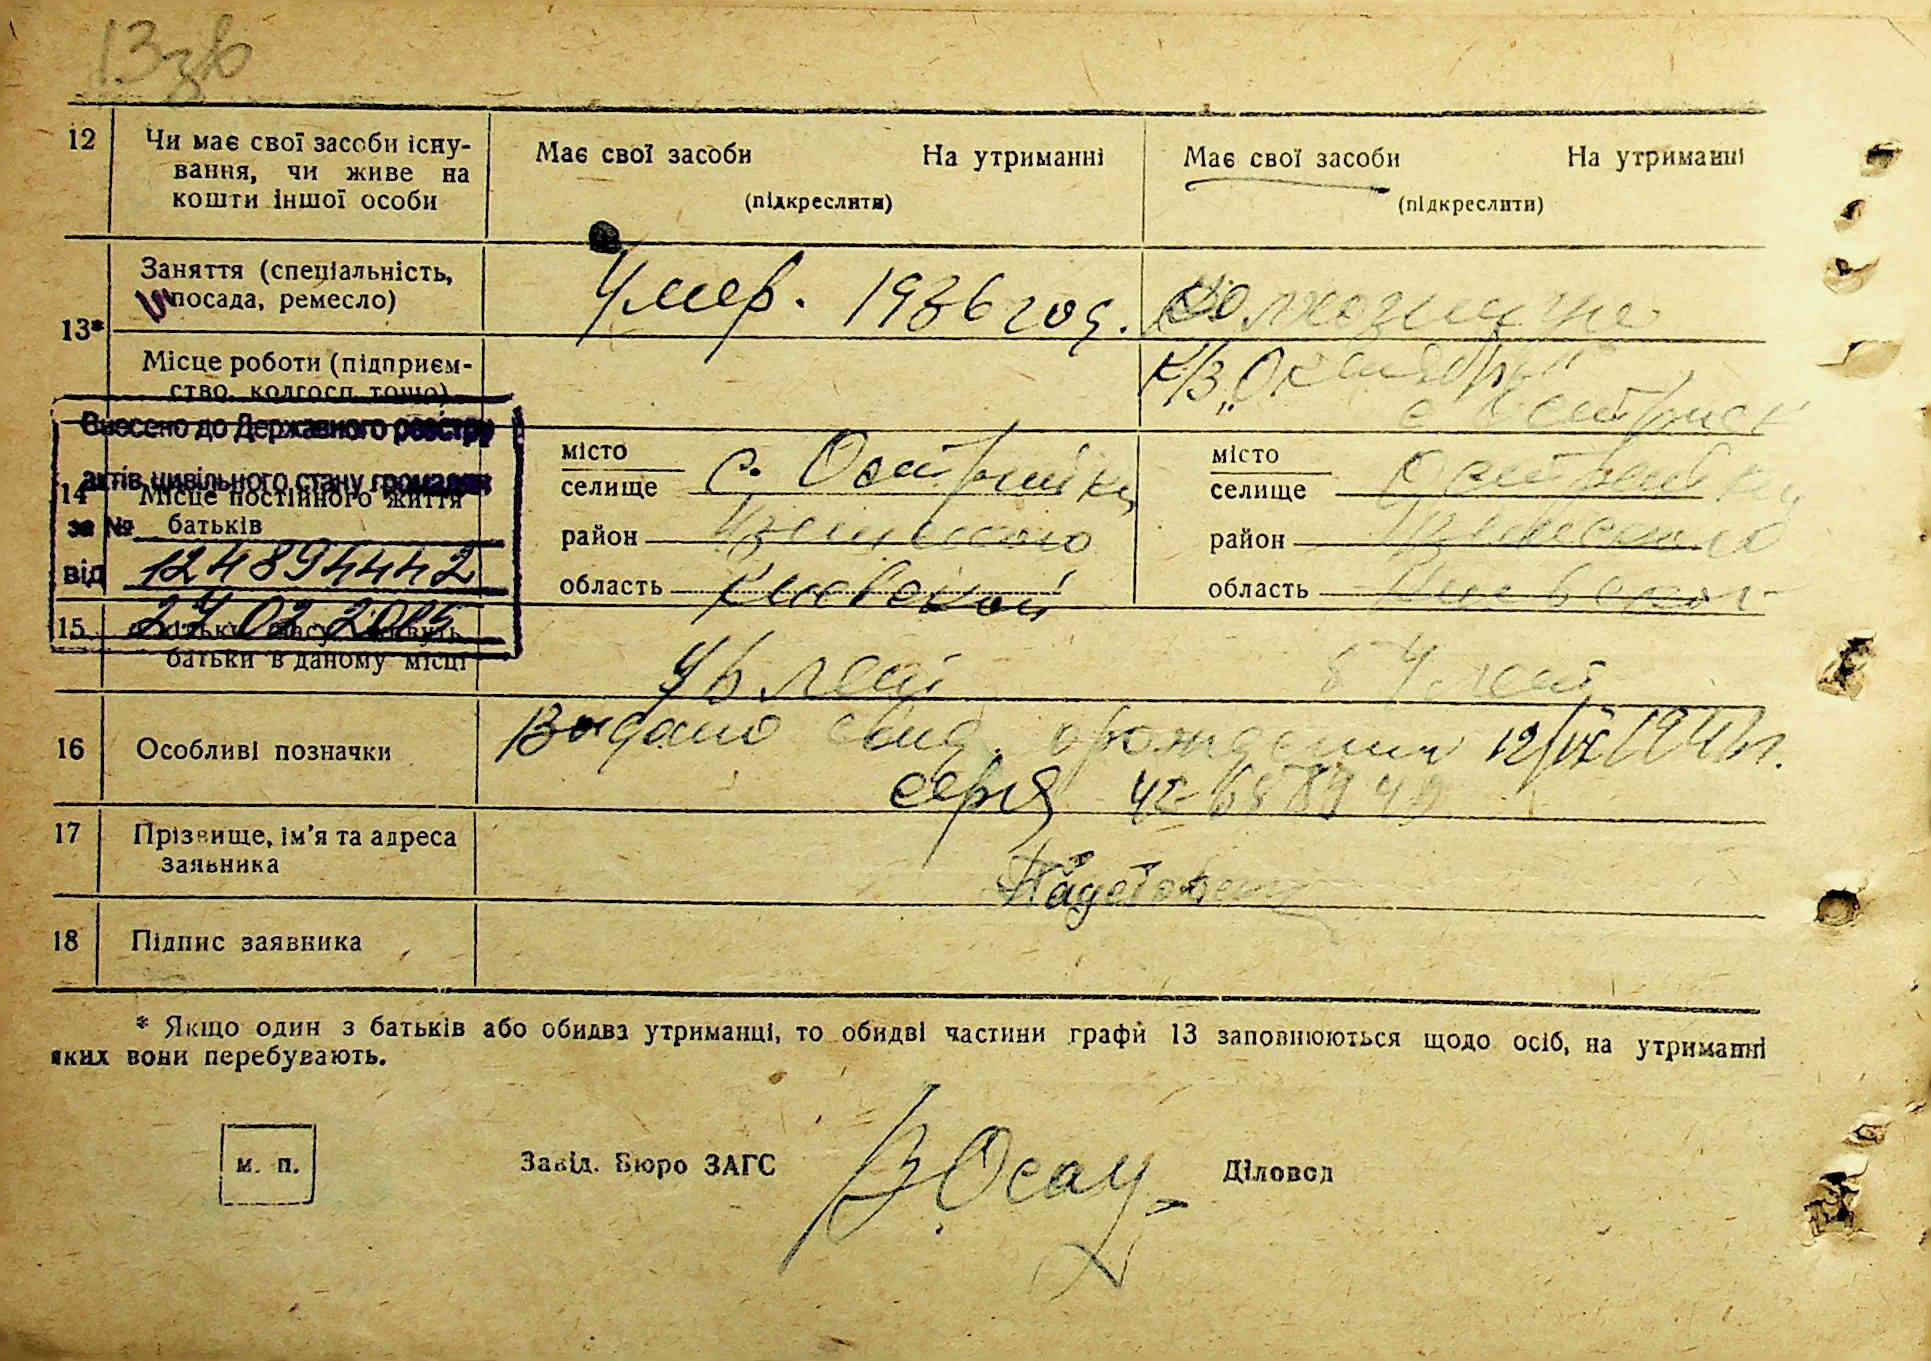 13 зв
12 Чи має свої засоби існу-
вання, чи живе на
кошти іншої особи
Має свої засоби На утриманні
(підкреслити)
Має свої засоби На утриманні
(підкреслити)
13*
Заняття (спеціальність,
посада, ремесло)
Умер. 1936 год.
Колхозница
Місце роботи (підприєм-
ство, колгосп тощо)
К/З „Октябрь"
Внесено до Державного реєстру
актів цивільного стану громадян
за №
12489444 2
від
27 02 2015
14 Місце постійного життя
батьків
місто
селище с. Острійки
район
область Киевской
місто
селище Острійки
район
область Киевской
15
батьки в даному місці
лет
лет
16 Особливі позначки
Выдано свид. о рождении
серия
17 Прізвище, ім'я та адреса
заявника
18 Підпис заявника
* Якщо один з батьків або обидва утриманці, то обидві частини графи 13 заповнюються щодо осіб, на утриманні
яких вони перебувають.
м. п.
Завід. Бюро ЗАГС
Діловод